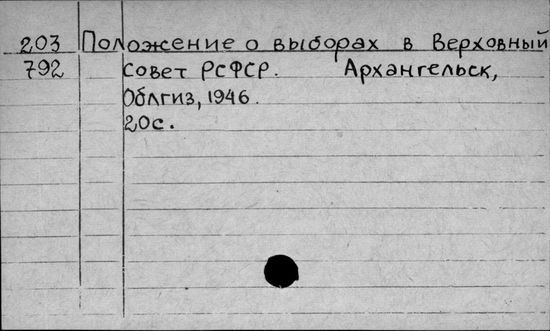 203 Положение о выборах в Верховный
792 Совет РСФСР. Архангельск,
Облгиз, 1946.
20с.